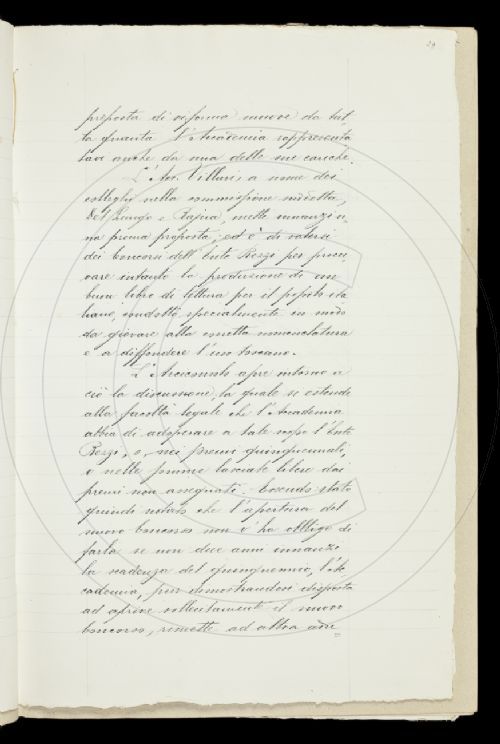 29
proposta di riforma muove da tut-
ta quanta l'Accademia rappresenta
ta anche da una delle sue cariche.
L'Acc. Villari a nome dei
colleghi nella commissione suddetta,
Del Lungo e Rajna, mette innanzi u
na prima proposta, ed è di valersi
dei Concorsi dell'Ente Rezzi per procu
rare intanto la produzione di un
buon libro di lettura per il popolo ita
liano, condotto specialmente in modo
da giovare alla esatta nomenclatura
e a diffondere l'uso toscano.
L'Arciconsolo apre intorno a
ciò la discussione, la quale si estende
alla facoltà legale che l'Accademia
abbia di adoperare a tale uopo l'Ente
Rezzi, o, nei premi quinquennali,
o nelle somme lasciate libere dai
premi non assegnati. Essendo stato
quindi notato che l'apertura del
nuovo Concorso non v'ha obbligo di
farla se non due anni innanzi
la scadenza del quinquennio, l'Ac
cademia, pur dimostrandosi disposta
ad aprire sollecitamente il nuovo
Concorso, rimette ad altra adu